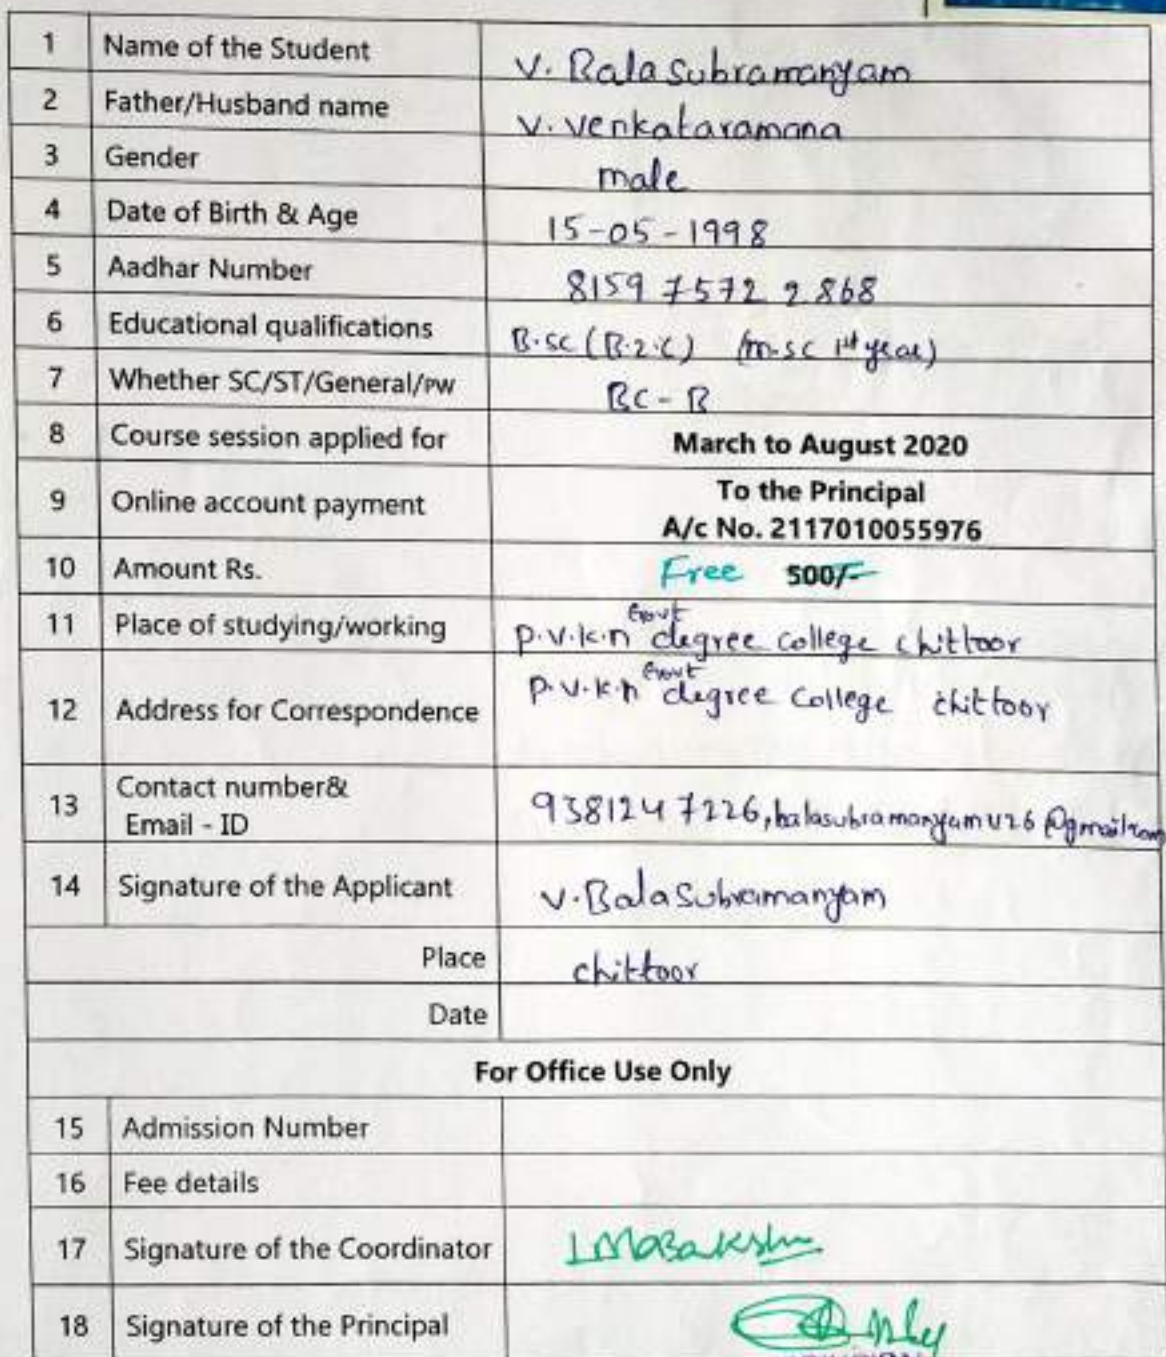 1 Name of the Student V. Bala Subramanyam
2 Father/Husband name V. Venkataramana
3 Gender male
4 Date of Birth & Age 15-05-1998
5 Aadhar Number 8159 7572 2868
6 Educational qualifications B.SC (B.Z.C) (M.SC 1st year)
7 Whether SC/ST/General/PW BC-B
8 Course session applied for March to August 2020
9 Online account payment To the Principal
A/c No. 2117010055976
10 Amount Rs. Free 500/-
11 Place of studying/working P.V.K.N Govt degree College Chittoor
12 Address for Correspondence P.V.K.N Govt degree College Chittoor
13 Contact number&
Email - ID 9381247226, balasubramanyamv26@gmail.com
14 Signature of the Applicant V. Bala Subramanyam
Place chittoor
Date
For Office Use Only
15 Admission Number
16 Fee details
17 Signature of the Coordinator
18 Signature of the Principal